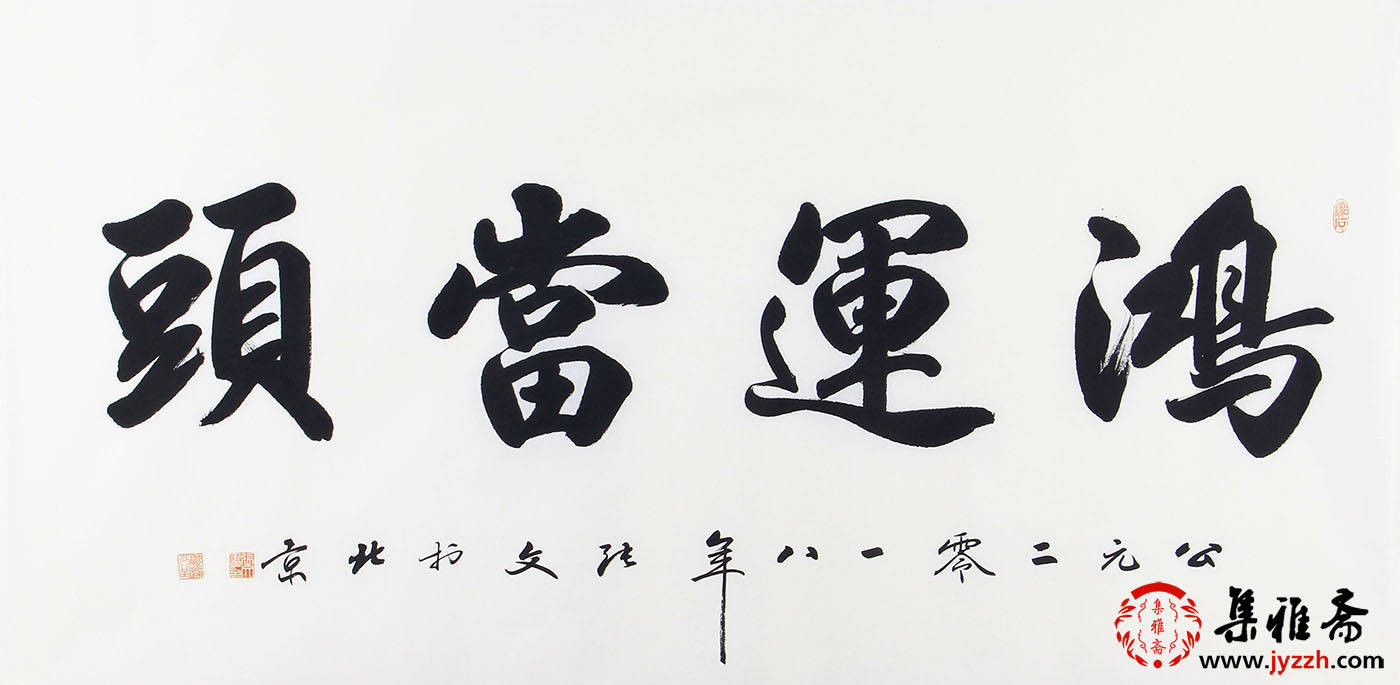 鴻運當頭
公元二零一八年張文於北京
集雅斋
集雅斋
www.jyzzh.com